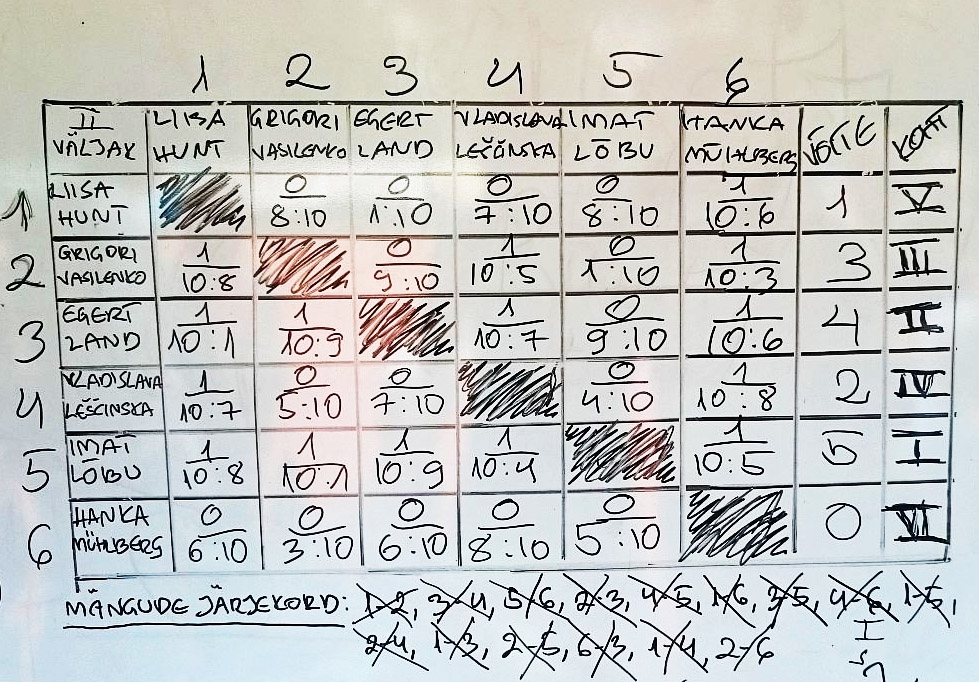 1 2 3 4 5 6
II VÄLJAK LIISA HUNT GRIGORI VASILENKO EGERT LAND VLADISLAVA LEŠČINSKA IMAT LÕBU HANKA MÜHLBERG VÕITE KOHT
1 LIISA HUNT 0 8:10 0 1:10 0 7:10 0 8:10 1 10:6 1 V
2 GRIGORI VASILENKO 1 10:8 0 9:10 1 10:5 0 1:10 1 10:3 3 III
3 EGERT LAND 1 10:1 1 10:9 1 10:7 0 9:10 1 10:6 4 II
4 VLADISLAVA LEŠČINSKA 1 10:7 0 5:10 0 7:10 0 4:10 1 10:8 2 IV
5 IMAT LÕBU 1 10:8 1 10:1 1 10:9 1 10:4 1 10:5 5 I
6 HANKA MÜHLBERG 0 6:10 0 3:10 0 6:10 0 8:10 0 5:10 0 VI
MÄNGUDE JÄRJEKORD: 1-2, 3-4, 5-6, 2-3, 4-5, 1-6, 3-5, 4-6, 1-5,
2-4, 1-3, 2-5, 6-3, 1-4, 2-6
I